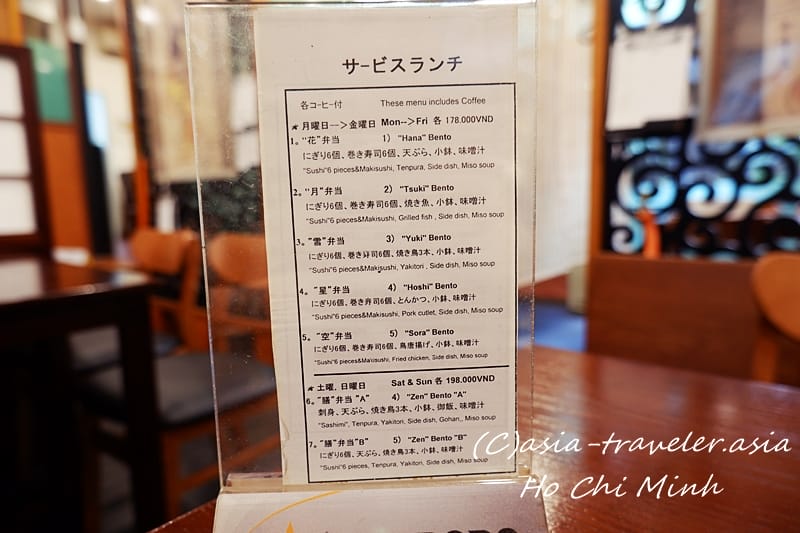 サービスランチ
各コーヒー付 These menu includes Coffee
★月曜日-->金曜日 Mon-->Fri 各 178.000VND
1。"花"弁当 1) "Hana" Bento
にぎり6個、巻き寿司6個、天ぷら、小鉢、味噌汁
"Sushi"6 pieces&Makisushi, Tenpura, Side dish, Miso soup
2。"月"弁当 2) "Tsuki" Bento
にぎり6個、巻き寿司6個、焼き魚、小鉢、味噌汁
"Sushi"6 pieces&Makisushi, Grilled fish , Side dish, Miso soup
3。"雪"弁当 3) "Yuki" Bento
にぎり6個、巻き寿司6個、焼き鳥3本、小鉢、味噌汁
"Sushi"6 pieces&Makisushi, Yakitori , Side dish, Miso soup
4。"星"弁当 4) "Hoshi" Bento
にぎり6個、巻き寿司6個、とんかつ、小鉢、味噌汁
"Sushi"6 pieces&Makisushi, Pork cutlet, Side dish, Miso soup
5。"空"弁当 5) "Sora" Bento
にぎり6個、巻き寿司6個、鳥唐揚げ、小鉢、味噌汁
"Sushi"6 pieces&Makisushi, Fried chicken, Side dish, Miso soup
★土曜, 日曜日 Sat & Sun 各 198.000VND
6。"膳"弁当 "A" 4) "Zen" Bento "A"
刺身、天ぷら、焼き鳥3本、小鉢、御飯、味噌汁
"Sashimi", Tenpura, Yakitori, Side dish, Gohan,, Miso soup
7。"膳"弁当"B" 5) "Zen" Bento "B"
にぎり6個、天ぷら、焼き鳥3本、小鉢、味噌汁
"Sushi"6 pieces, Tenpura, Yakitori, Side dish, Miso soup
(C)asia-traveler.asia
Ho Chi Minh